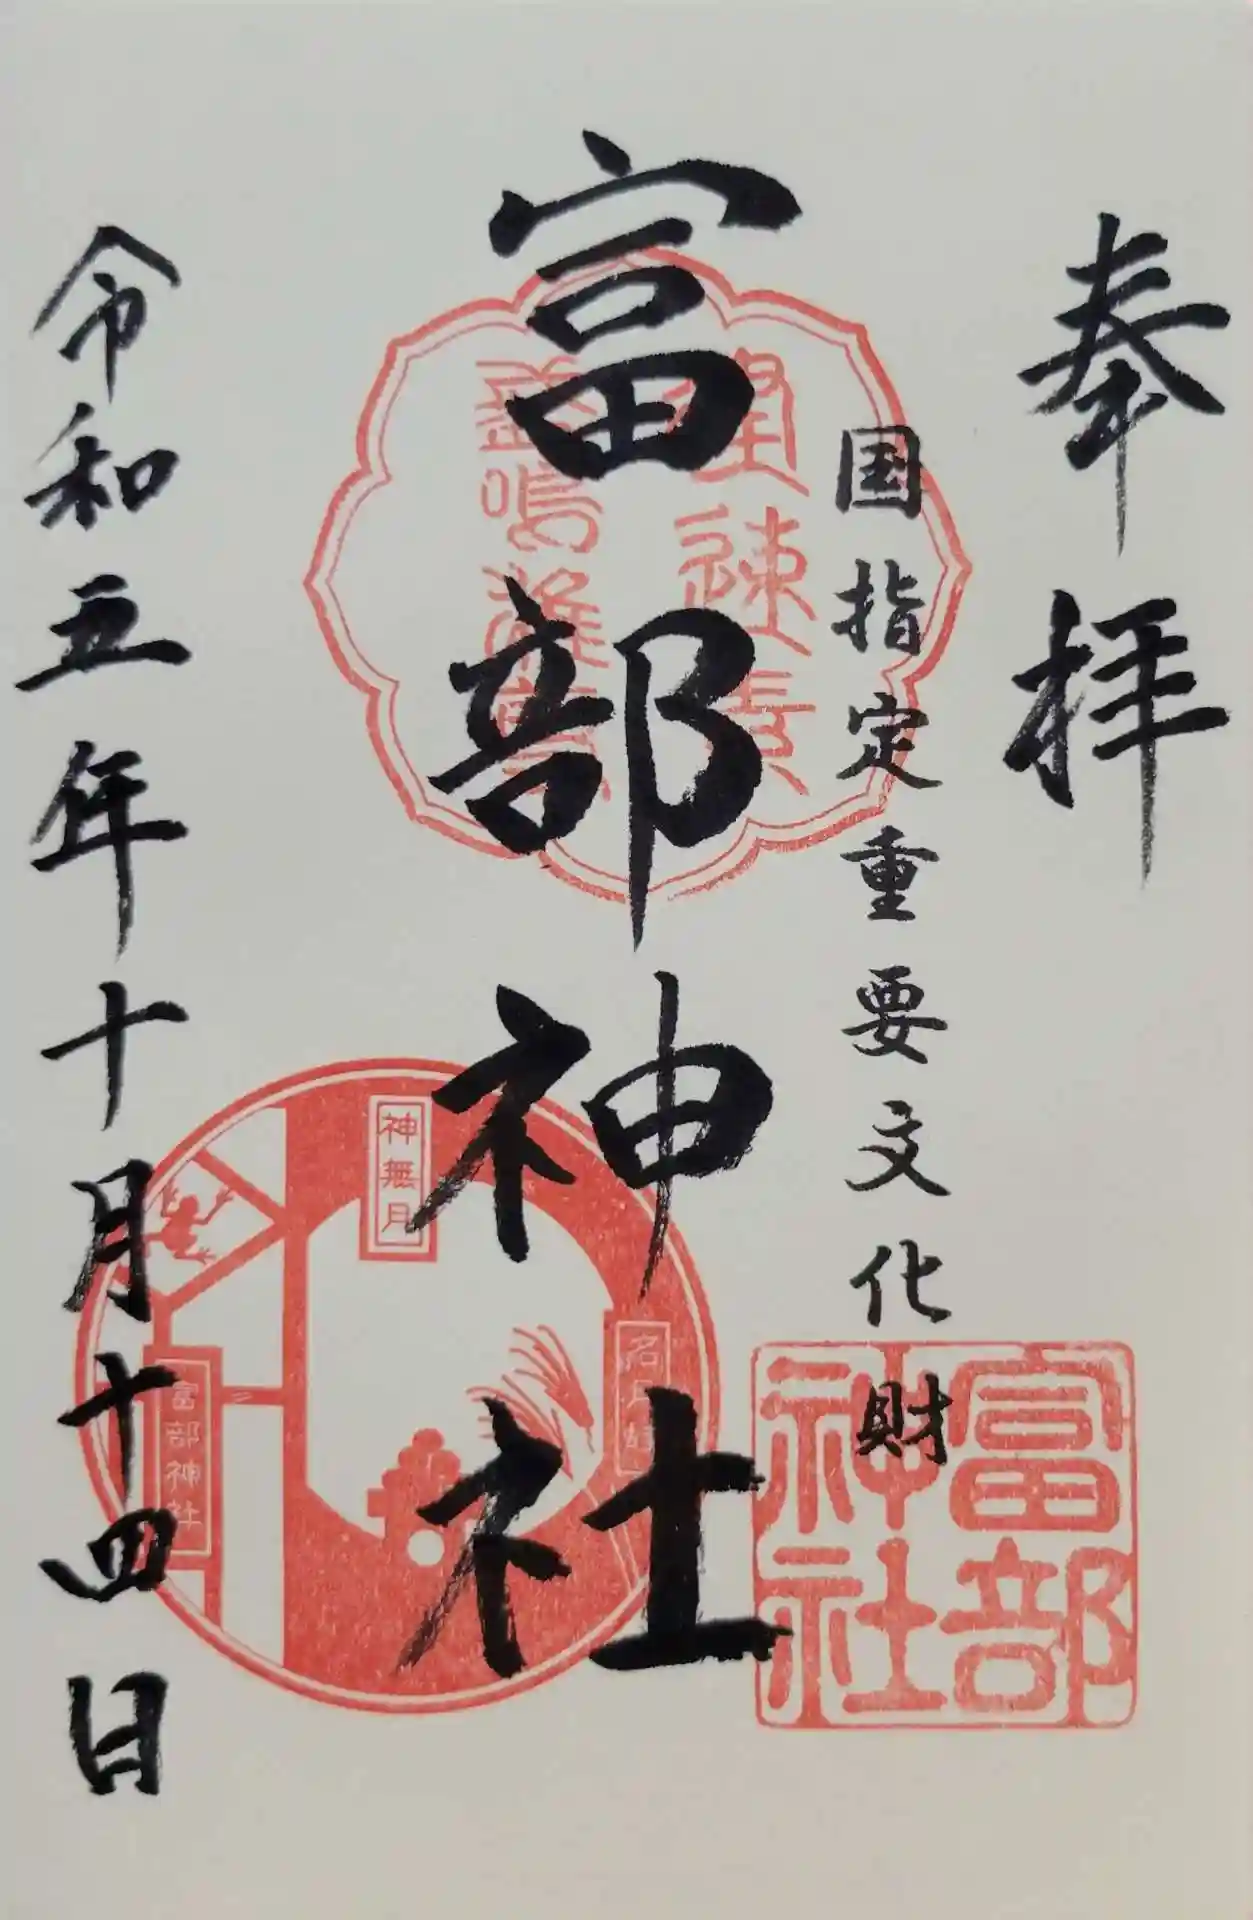 奉拝
国指定重要文化財
富部神社
令和五年十月十四日
神無月
富部神社
富部神社